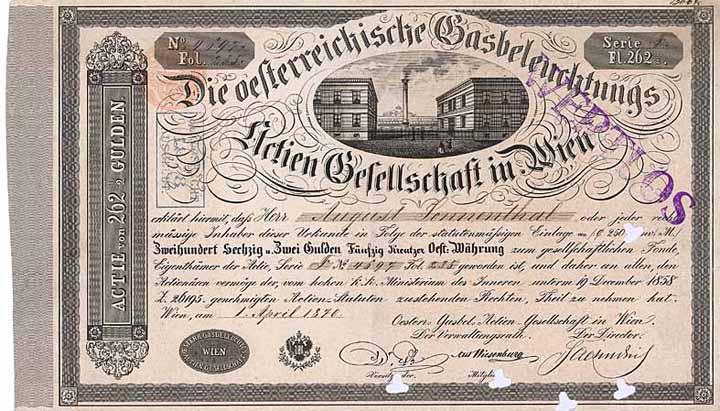 ACTIE von 262 ½ GULDEN
No
Fol.
Serie
Fl. 262 ½
Die oesterreichische Gasbeleuchtungs
Actien Gesellschaft in Wien
WERTLOS
erklärt hiermit, daß Herr August Sonnenthal oder jeder recht-
mässige Inhaber dieser Urkunde in Folge der statutenmäßigen Einlage
Zweihundert Sechzig u. Zwei Gulden Fünfzig Kreutzer Oest. Währung zum gesellschaftlichen Fonde,
Eigenthümer der Actie, Serie No Fol. geworden ist, und daher an allen, den
Actionären vermöge der, vom hohen k. k. Ministerium des Inneren unterm 19 December 1858
Z. 28195. genehmigten Actien-Statuten zustehenden Rechten, Theil zu nehmen hat.
Wien, am 1. April 1870.
Oesterr. Gasbel. Actien-Gesellschaft in Wien.
Der Verwaltungsrath. Der Director.
WIEN